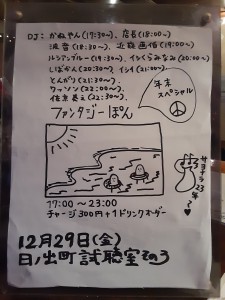 DJ: かねやん(17:30〜)、店長(18:00〜)
波音(18:30〜)、近藤画伯(19:00〜)
ルシアンブルー(19:30〜)、イシくらみなみ(20:00〜)
しばかん(20:30〜)、イシイ(21:00〜)
とんがり(21:30〜)、
ワッソン(22:00〜)、
佐京泰之(22:30〜)、
年末
スペシャル
ファンタジーぽん
サヨナラ23年
17:00〜23:00
チャージ300円+1ドリンクオーダー
12月29日(金)
日ノ出町試聴室その3